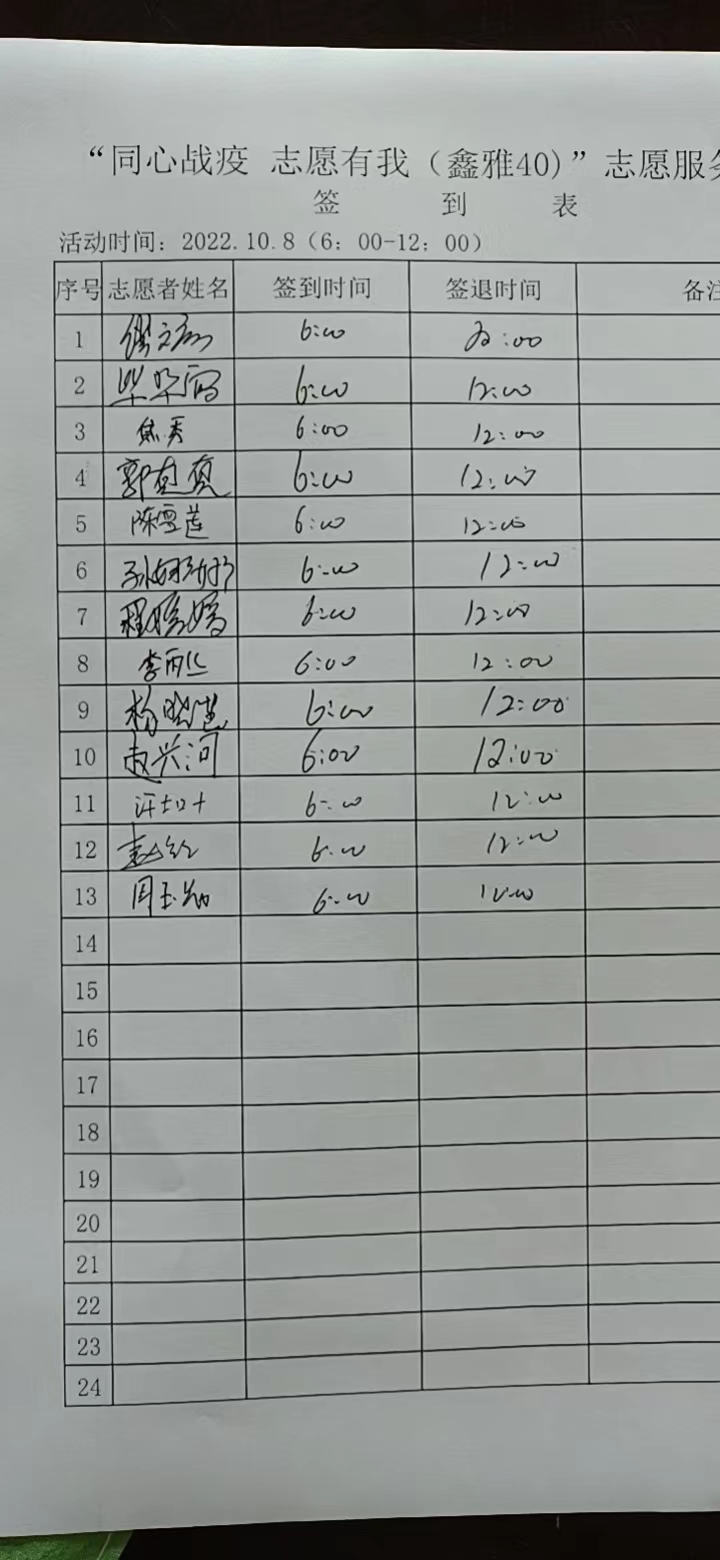 “同心战疫 志愿有我（鑫雅40)”志愿服务
签 到 表
活动时间：2022.10.8（6：00-12：00）
序号 志愿者姓名 签到时间 签退时间 备注
1 6:00 12:00
2 6:00 12:00
3 焦秀 6:00 12:00
4 郭真真 6:00 12:00
5 陈雪莲 6:00 12:00
6 6:00 12:00
7 程嫦嫦 6:00 12:00
8 李丽 6:00 12:00
9 杨晓莲 6:00 12:00
10 赵兴河 6:00 12:00
11 6:00 12:00
12 赵红 6:00 12:00
13 周玉 6:00 12:00
14
15
16
17
18
19
20
21
22
23
24